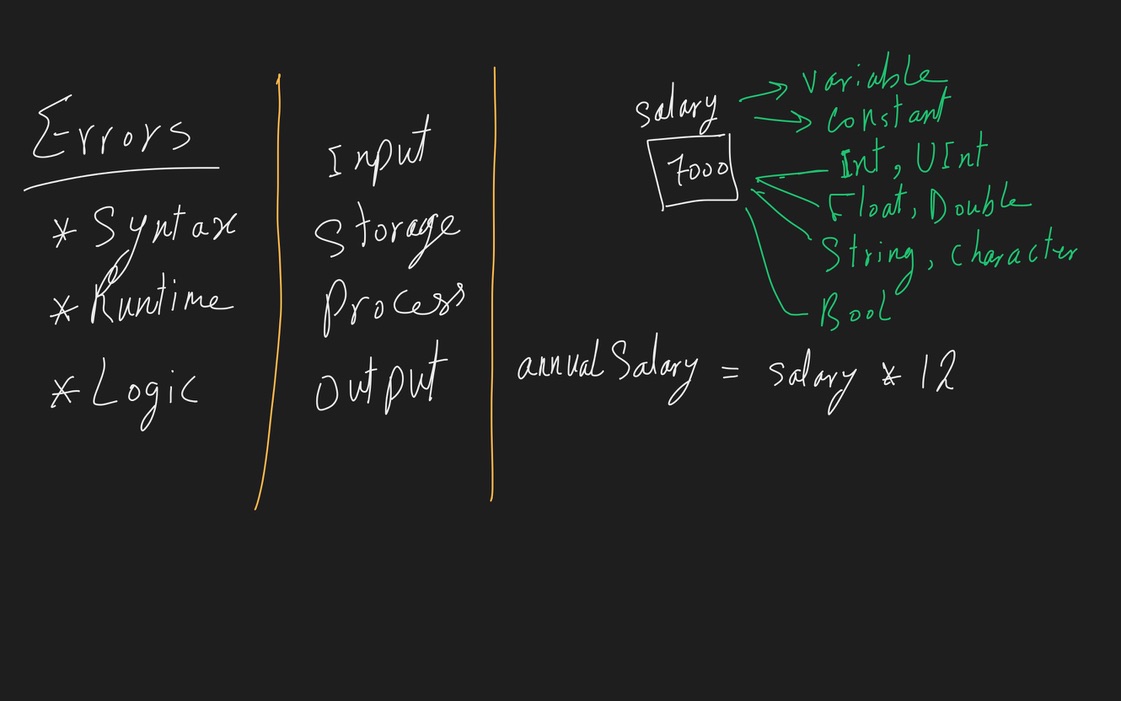 Errors
* Syntax
* Runtime
* Logic
Input
Storage
Process
Output
salary
7000
Variable
Constant
Int, UInt
Float, Double
String, Character
Bool
annualSalary = salary * 12